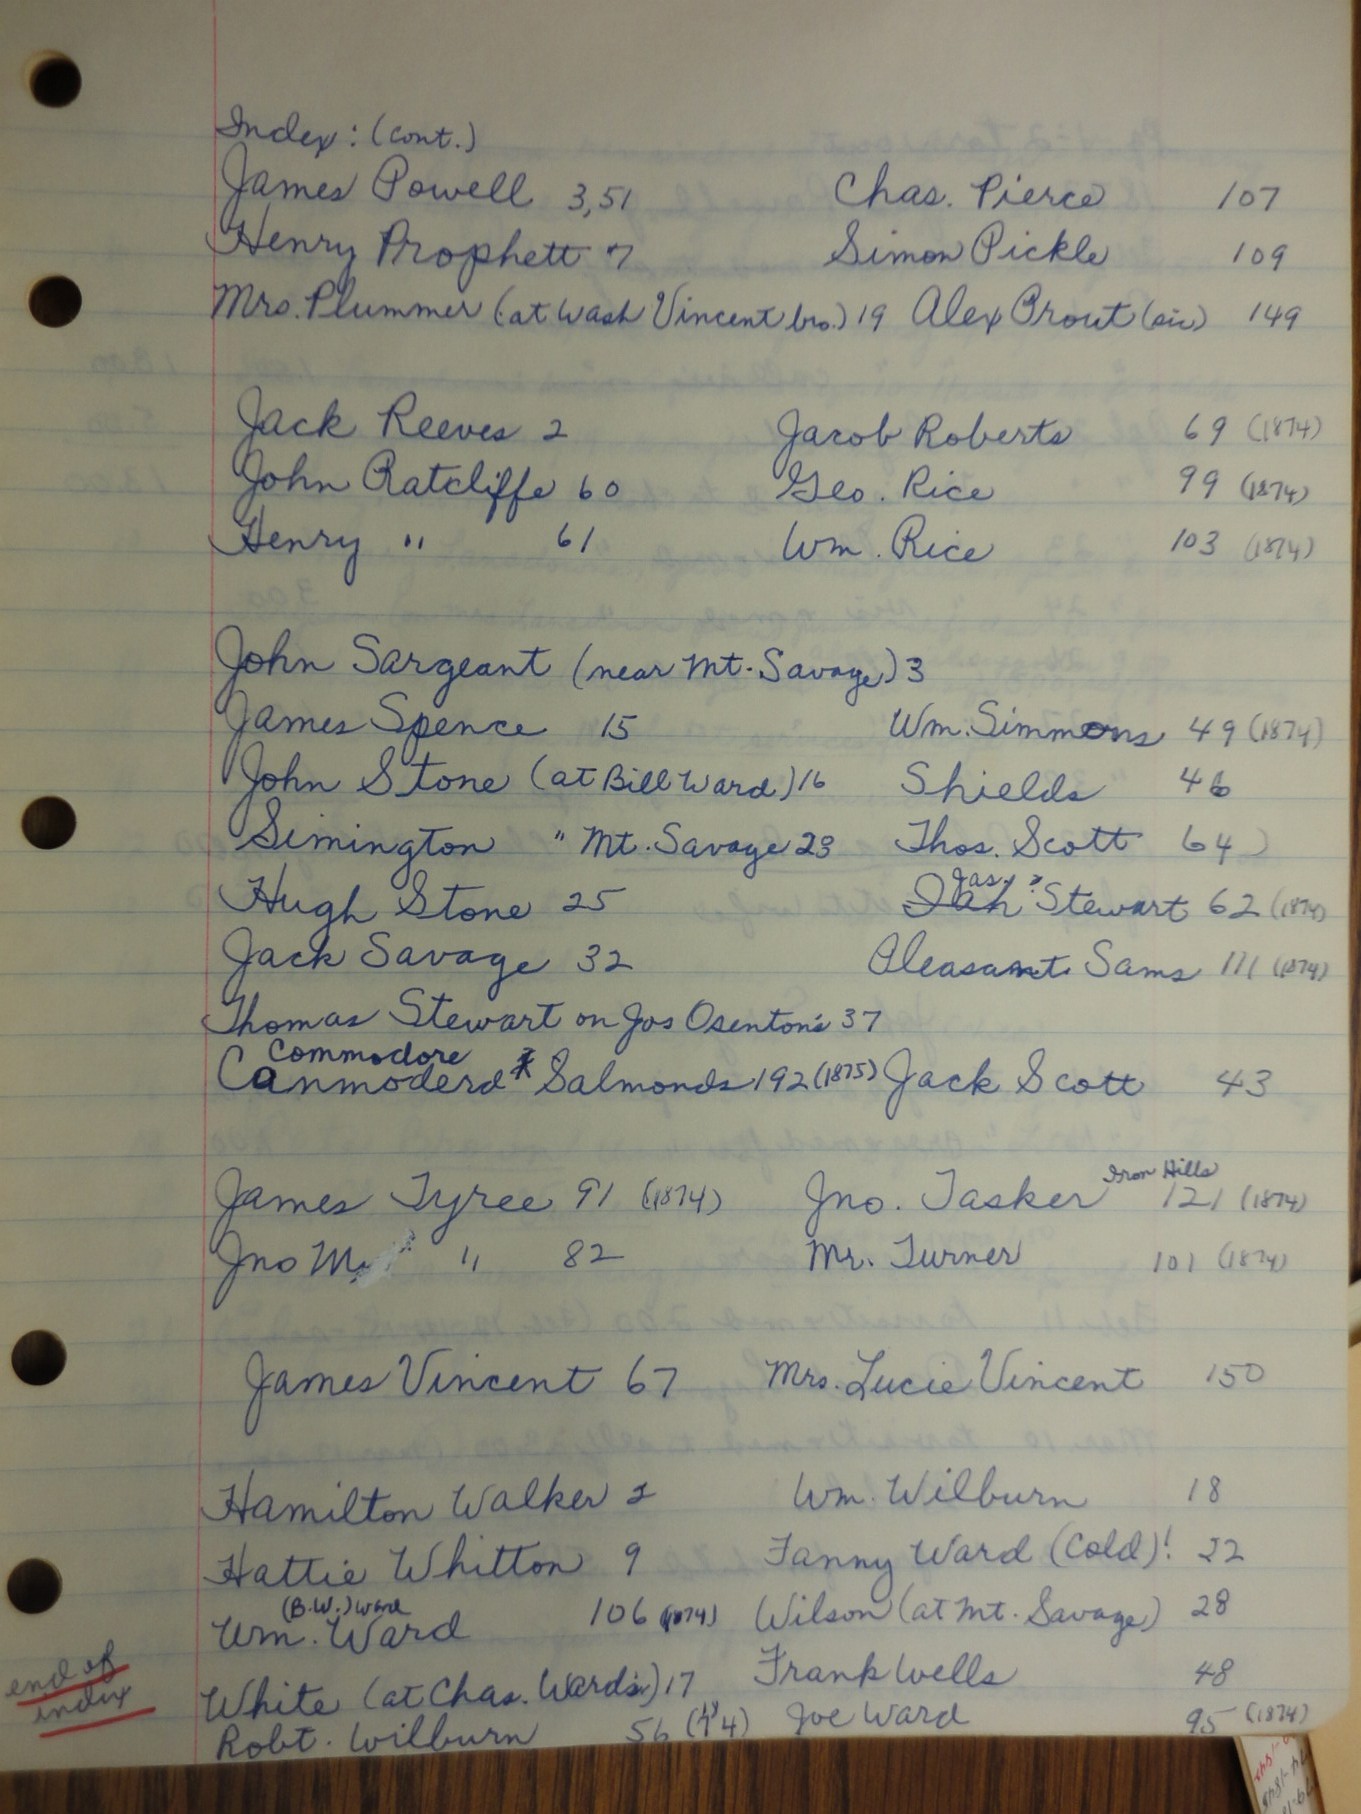 Index: (cont.)
James Powell 3,51 Chas. Pierce 107
Henry Prophett 7 Simon Pickle 109
Mrs. Plummer (at Wash Vincent bro.) 19 Alex Prout (sic) 149
Jack Reeves 2 Jacob Roberts 69 (1874)
John Ratcliffe 60 Geo. Rice 99 (1874)
Henry " 61 Wm. Rice 103 (1874)
John Sargeant (near Mt. Savage) 3
James Spence 15 Wm. Simmons 49 (1874)
John Stone (at Bill Ward) 16 Shields 46
Simington " Mt. Savage 23 Thos. Scott 64)
Hugh Stone 25 Jas? Stewart 62 (1874)
Jack Savage 32 Pleasant Sams 111 (1874)
Thomas Stewart on Jos Osenton's 37
Commodore
Canmoderd * Salmonds 192 (1875) Jack Scott 43
Iron Hills
James Tyree 91 (1874) Jno. Tasker 121 (1874)
Jno M " 82 Mr. Turner 101 (1874)
James Vincent 67 Mrs. Lucie Vincent 150
Hamilton Walker 2 Wm. Wilburn 18
Hattie Whitton 9 Fanny Ward (Cold)! 22
(B.W.) Ward
Wm. Ward 106 (1874) Wilson (at Mt. Savage) 28
end of
index
White (at Chas. Ward's) 17 Frank Wells 48
Robt. Wilburn 56 (74) Joe Ward 95 (1874)